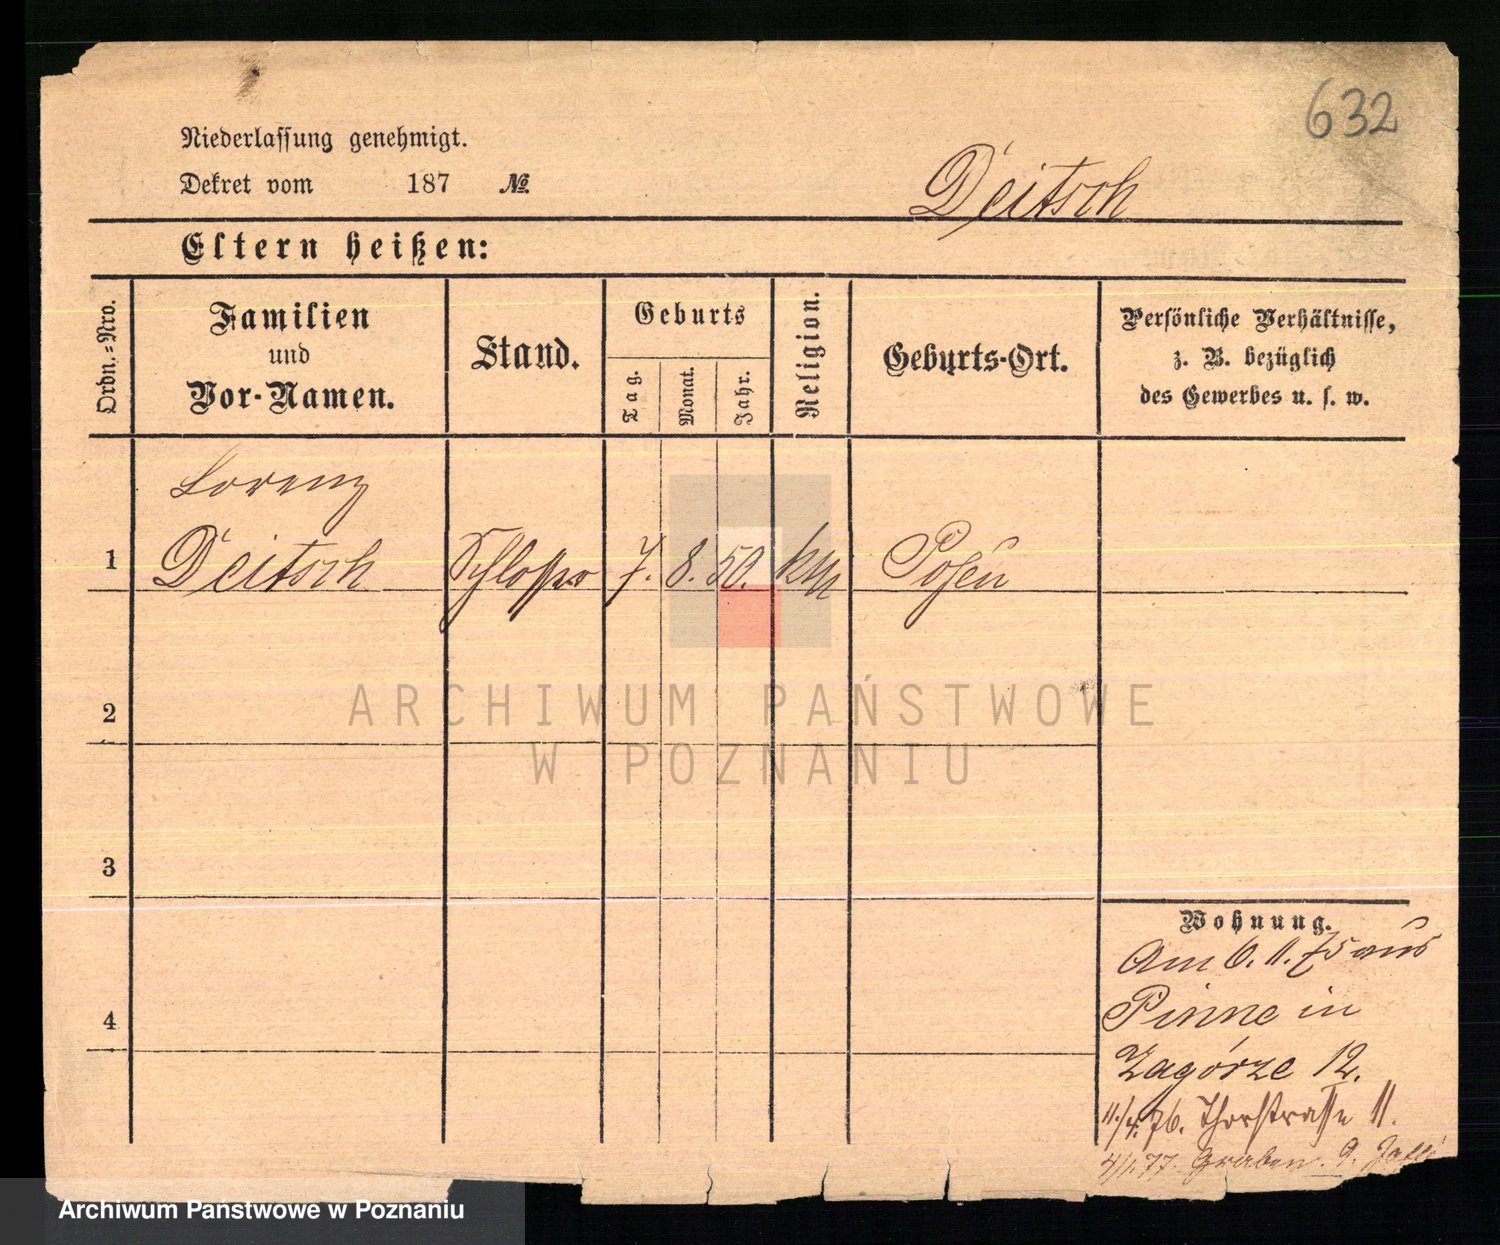 632
Niederlassung genehmigt.
Dekret vom 187 №
Deitsch
Eltern heißen:
Ordn.=Nro.
Familien
und
Vor-Namen.
Stand.
Geburts
Tag.
Monat.
Jahr.
Religion.
Geburts-Ort.
Persönliche Verhältnisse,
z. B. bezüglich
des Gewerbes u. s. w.
Lorenz
1 Deitsch Schlosser 7. 8. 50. kth Posen
2
3
4
Wohnung.
Am 6. 11. 75 aus
Pinne in
Zagórze 12.
11./4. 76. Thorstrasse 11.
4/1. 77. Graben. 9.
ARCHIWUM PAŃSTWOWE
W POZNANIU
Archiwum Państwowe w Poznaniu